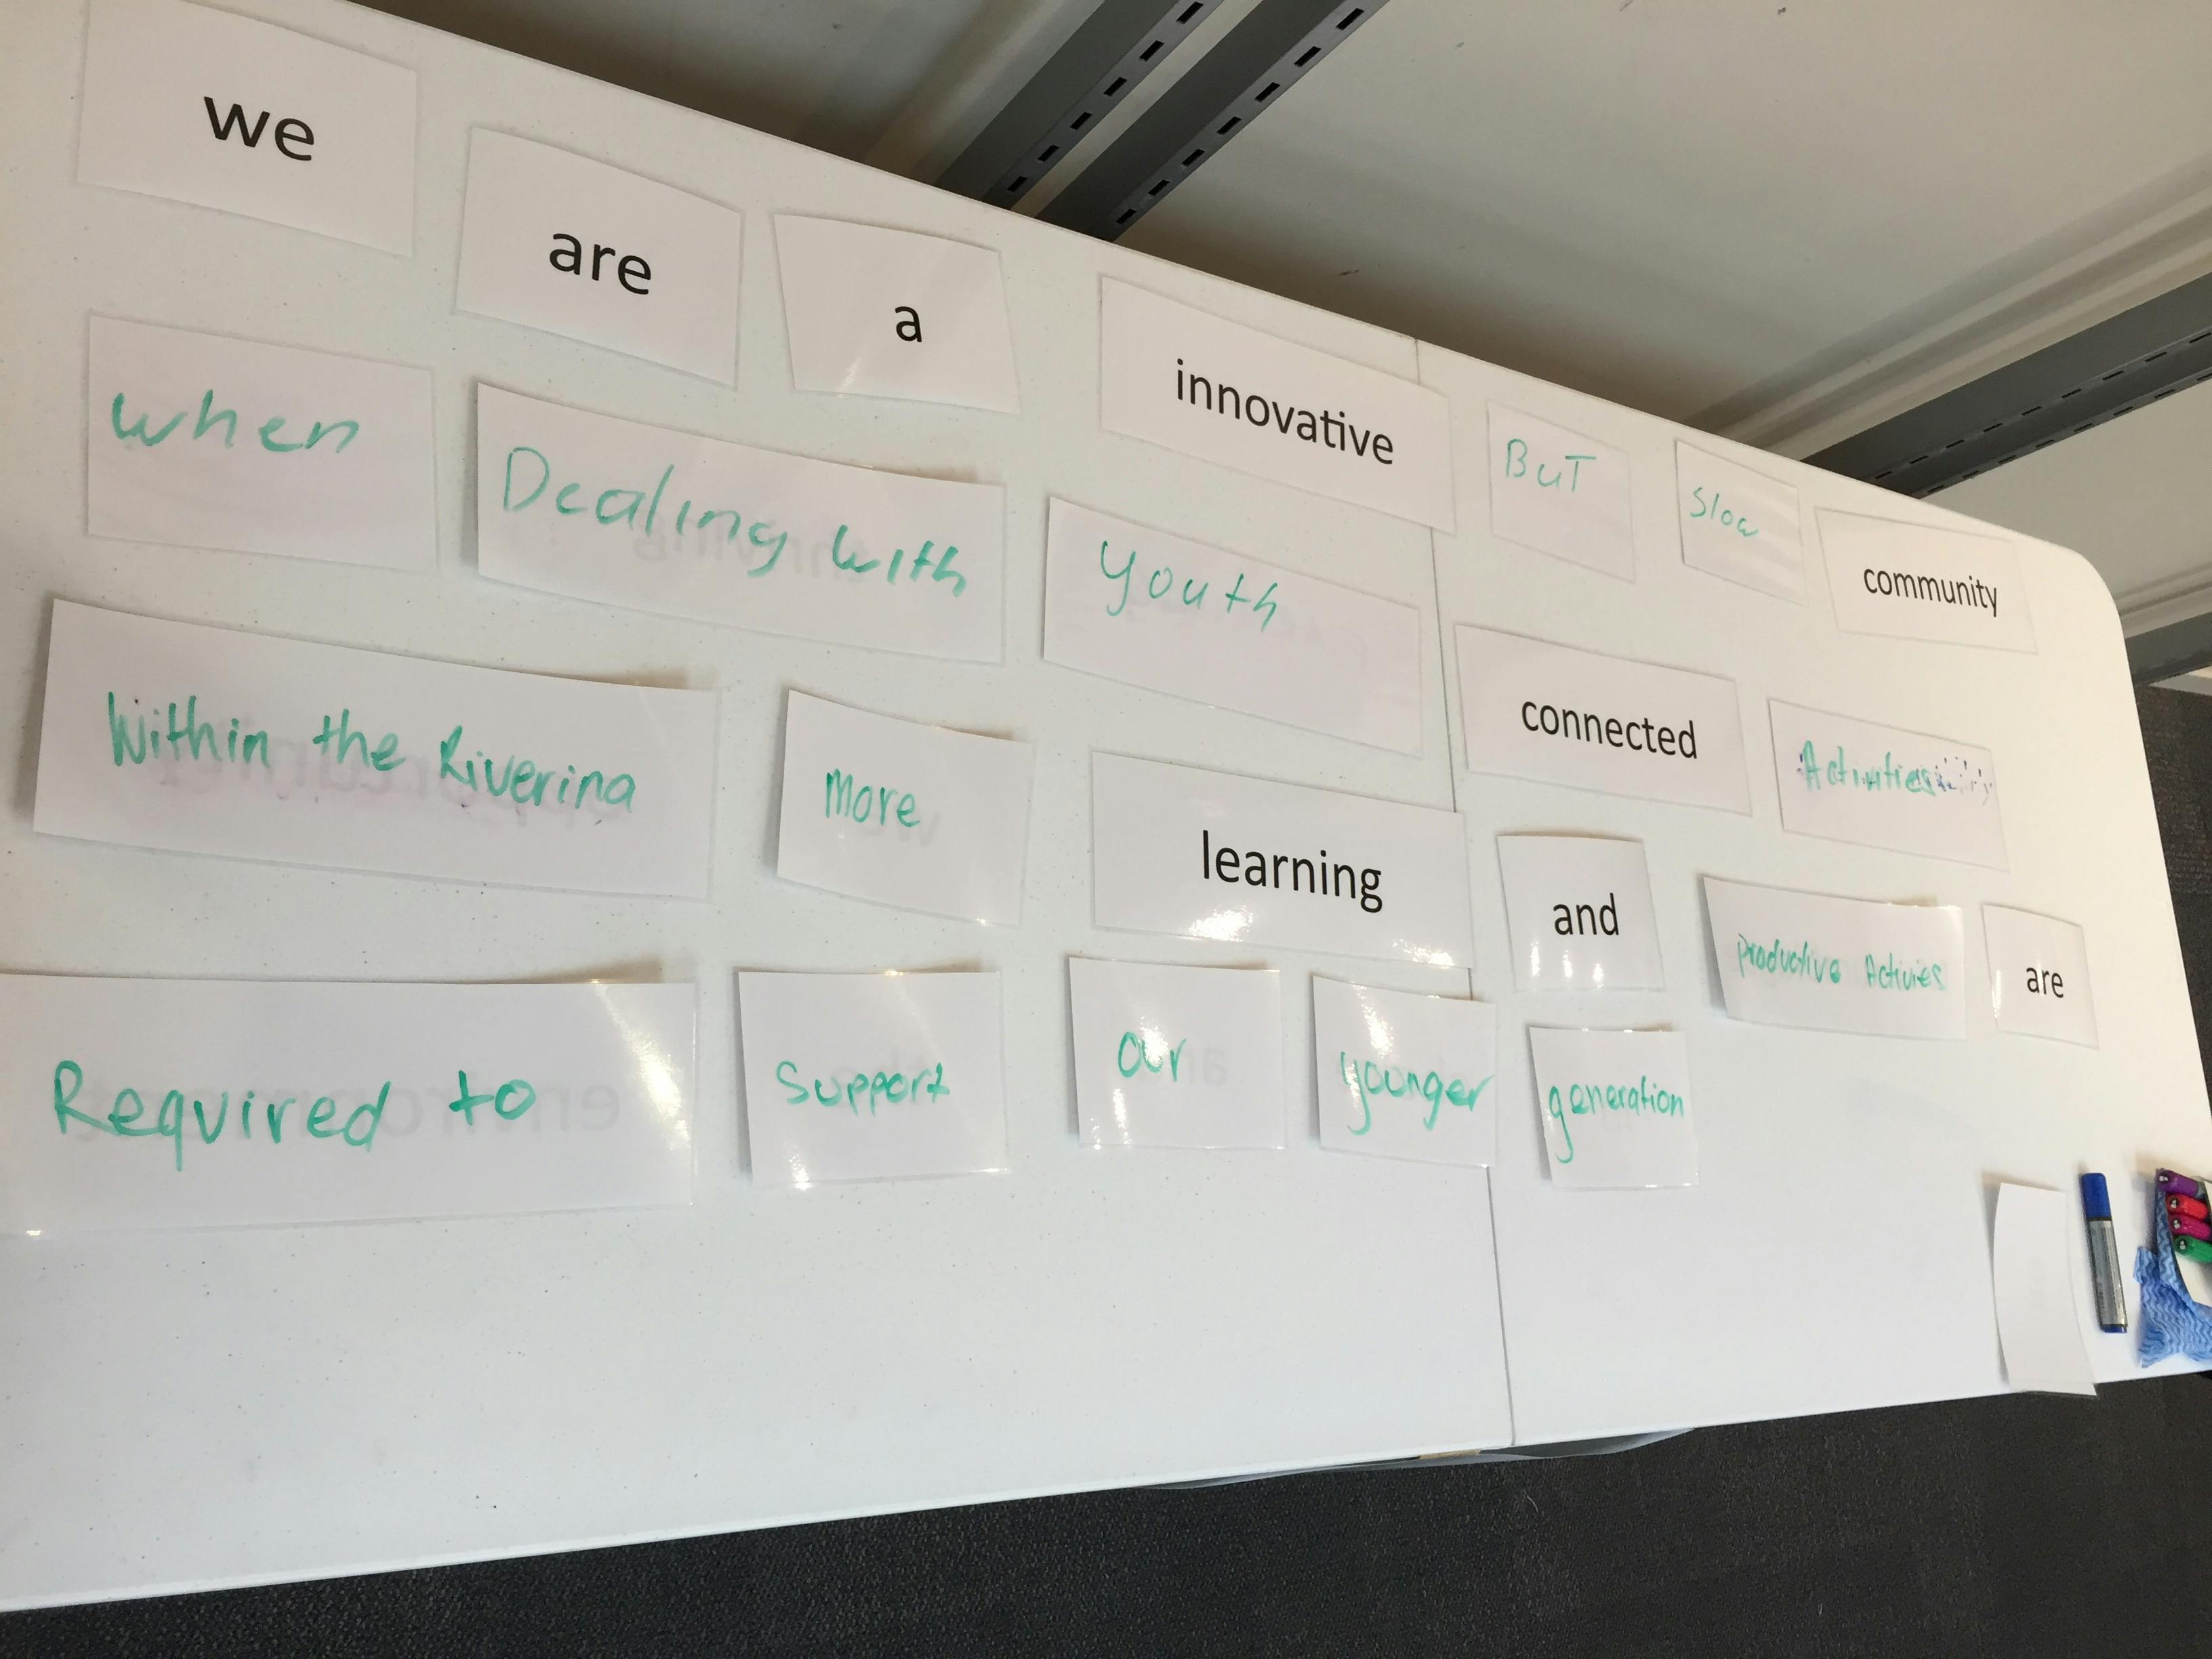 we are a innovative BuT Slow community
when Dealing with youth connected Activities
Within the Riverina More learning and productive Activies are
Required to Support our younger generation